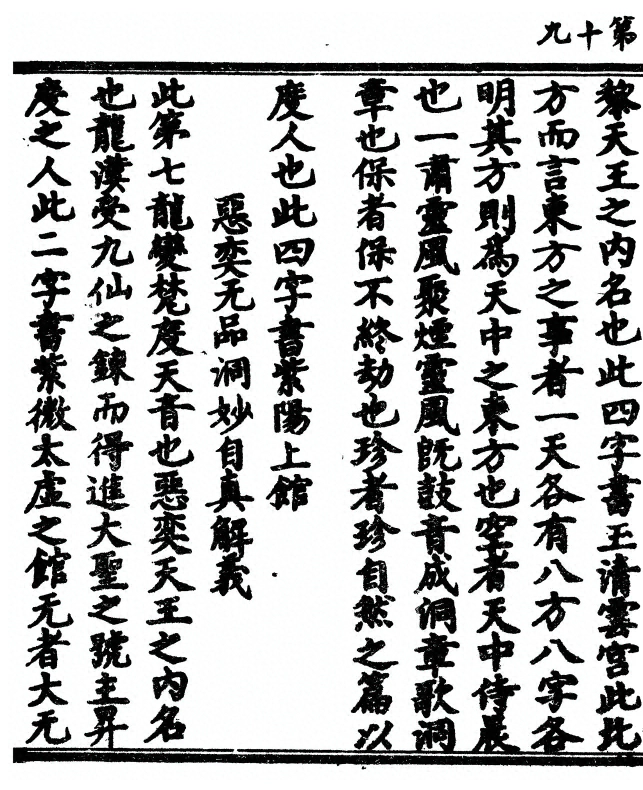 第十九
黎天王之內名也此四字書玉清雲宮此北
方而言東方之事者一天各有八方八字各
明其方則為天中之東方也空者天中侍晨
也一肅靈風聚煙靈風既鼓音成洞章歌洞
章也保者保不終劫也珍者珍自然之篇以
度人也此四字書紫陽上館
惡奕无品洞妙自真解義
此第七龍變梵度天音也惡奕天王之內名
也龍漢受九仙之鍊而得進大聖之號主昇
度之人此二字書紫微太虛之館无者大无